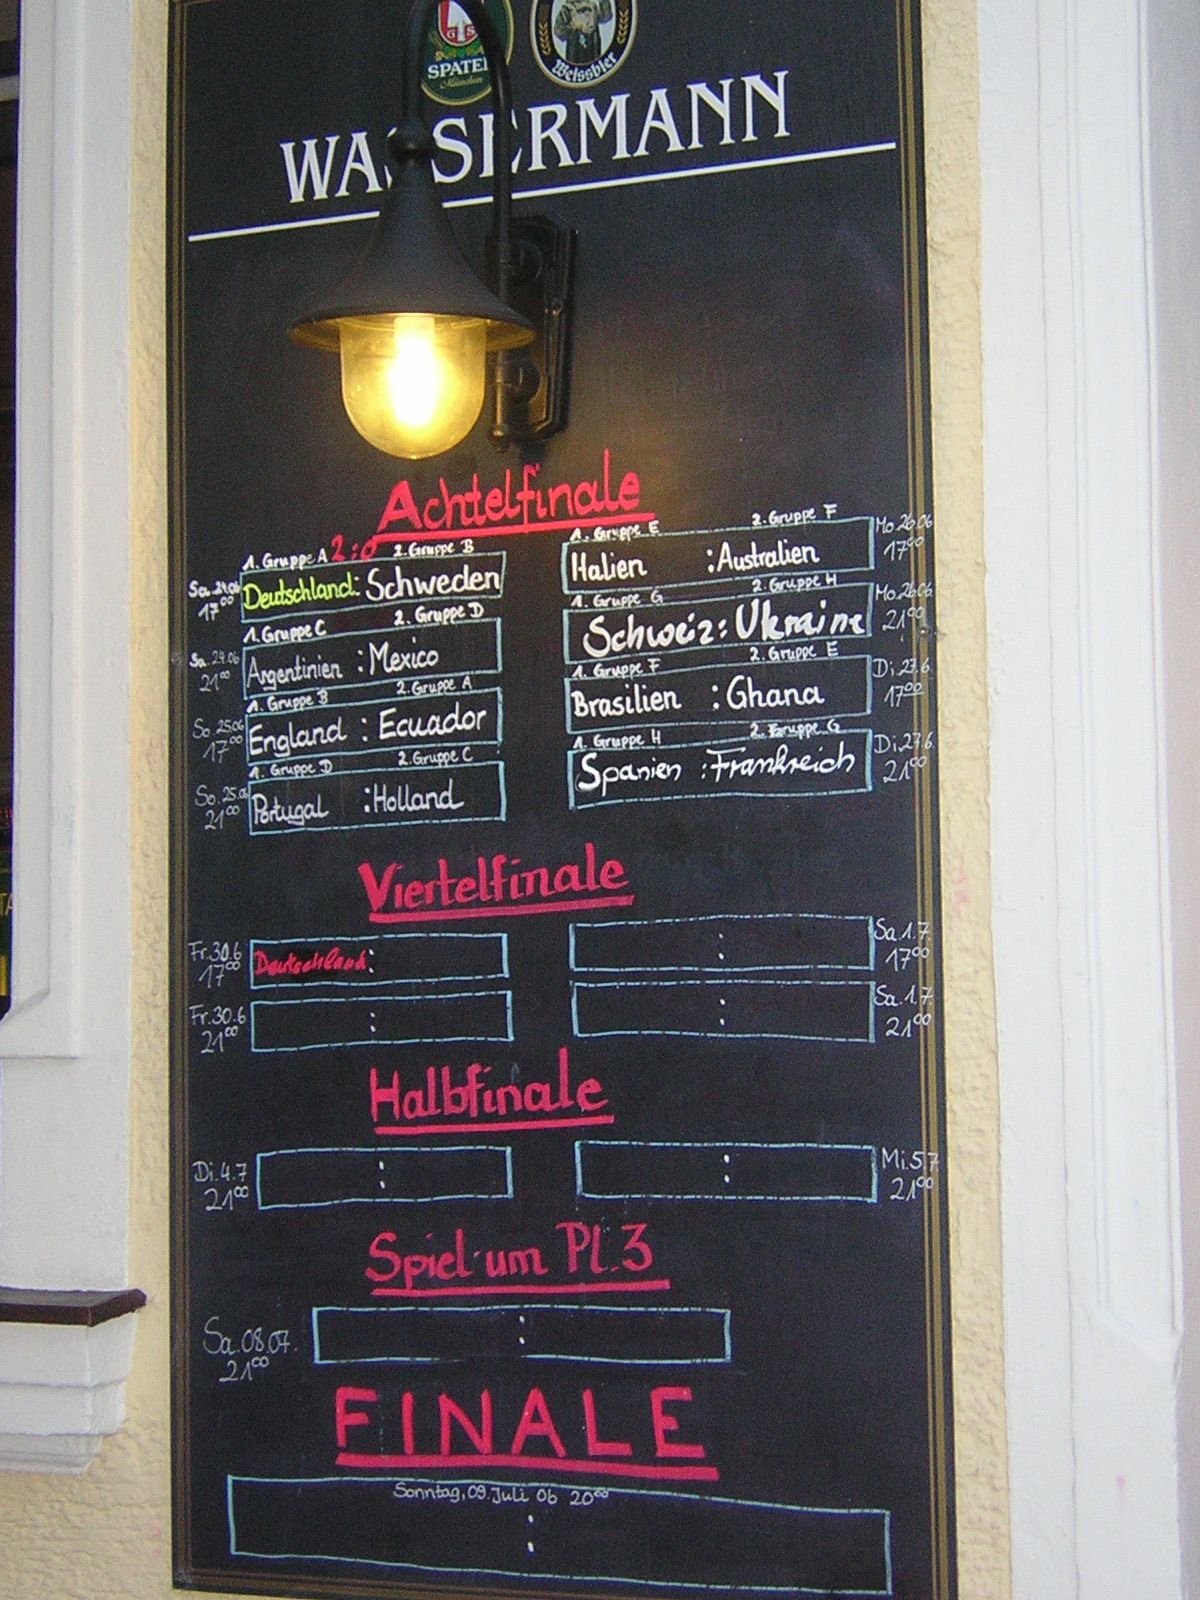 SPATEN
München
Weissbier
WASSERMANN
Achtelfinale
1. Gruppe A 2:0 2. Gruppe B
Sa. 24.06 17⁰⁰ Deutschland: Schweden
1. Gruppe C 2. Gruppe D
Sa. 24.06 21⁰⁰ Argentinien : Mexico
1. Gruppe B 2. Gruppe A
So. 25.06 17⁰⁰ England : Ecuador
1. Gruppe D 2. Gruppe C
So. 25.06 21⁰⁰ Portugal :Holland
1. Gruppe E 2. Gruppe F
Italien :Australien Mo. 26.06 17⁰⁰
1. Gruppe G 2. Gruppe H
Schweiz: Ukraine Mo. 26.06 21⁰⁰
1. Gruppe F 2. Gruppe E
Brasilien :Ghana Di. 27.6. 17⁰⁰
1. Gruppe H 2. Gruppe G
Spanien :Frankreich Di. 27.6. 21⁰⁰
Viertelfinale
Fr. 30.6 17⁰⁰ Deutschland: : Sa. 1.7. 17⁰⁰
Fr. 30.6 21⁰⁰ : : Sa. 1.7. 21⁰⁰
Halbfinale
Di. 4.7 21⁰⁰ : : Mi. 5.7 21⁰⁰
Spiel um Pl. 3
Sa. 08.07. 21⁰⁰ :
FINALE
Sonntag, 09. Juli 06 20⁰⁰
: